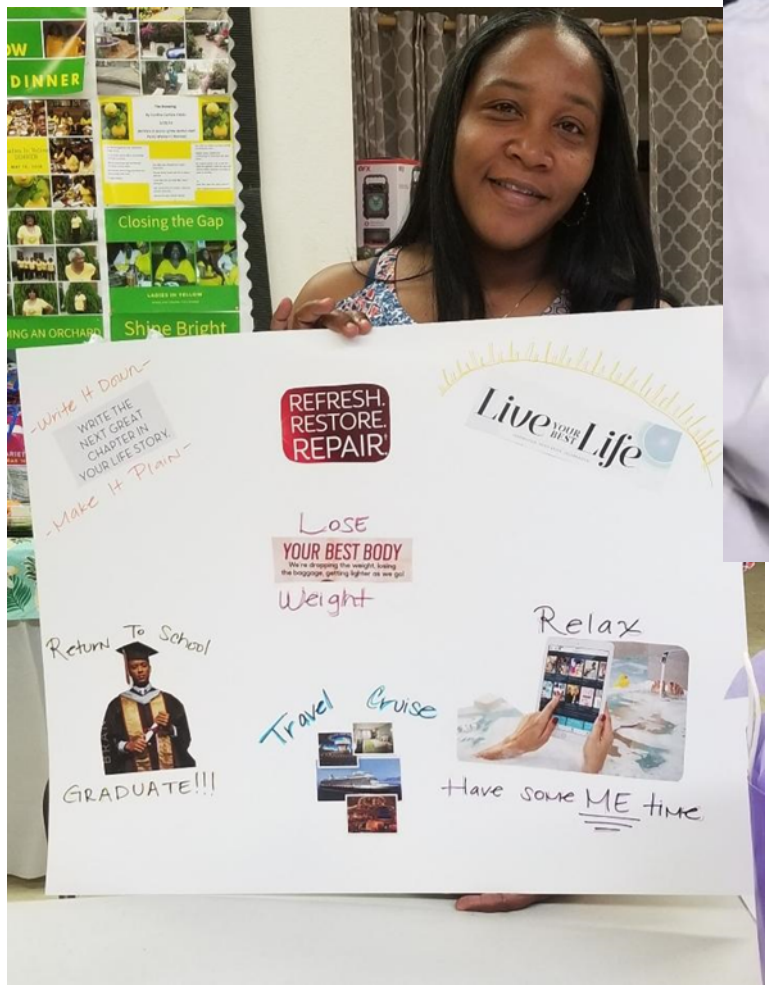 OW
DINNER
Closing the Gap
LADIES IN YELLOW
ING AN ORCHARD
Shine Bright
-Write It Down-
WRITE THE
NEXT GREAT
CHAPTER IN
YOUR LIFE STORY.
-Make It Plain-
REFRESH.
RESTORE.
REPAIR.
Live YOUR BEST Life
LOSE
YOUR BEST BODY
We're dropping the weight, losing
the baggage, getting lighter as we go!
Weight
Return To School
GRADUATE!!!
Travel Cruise
Relax
Have some ME time